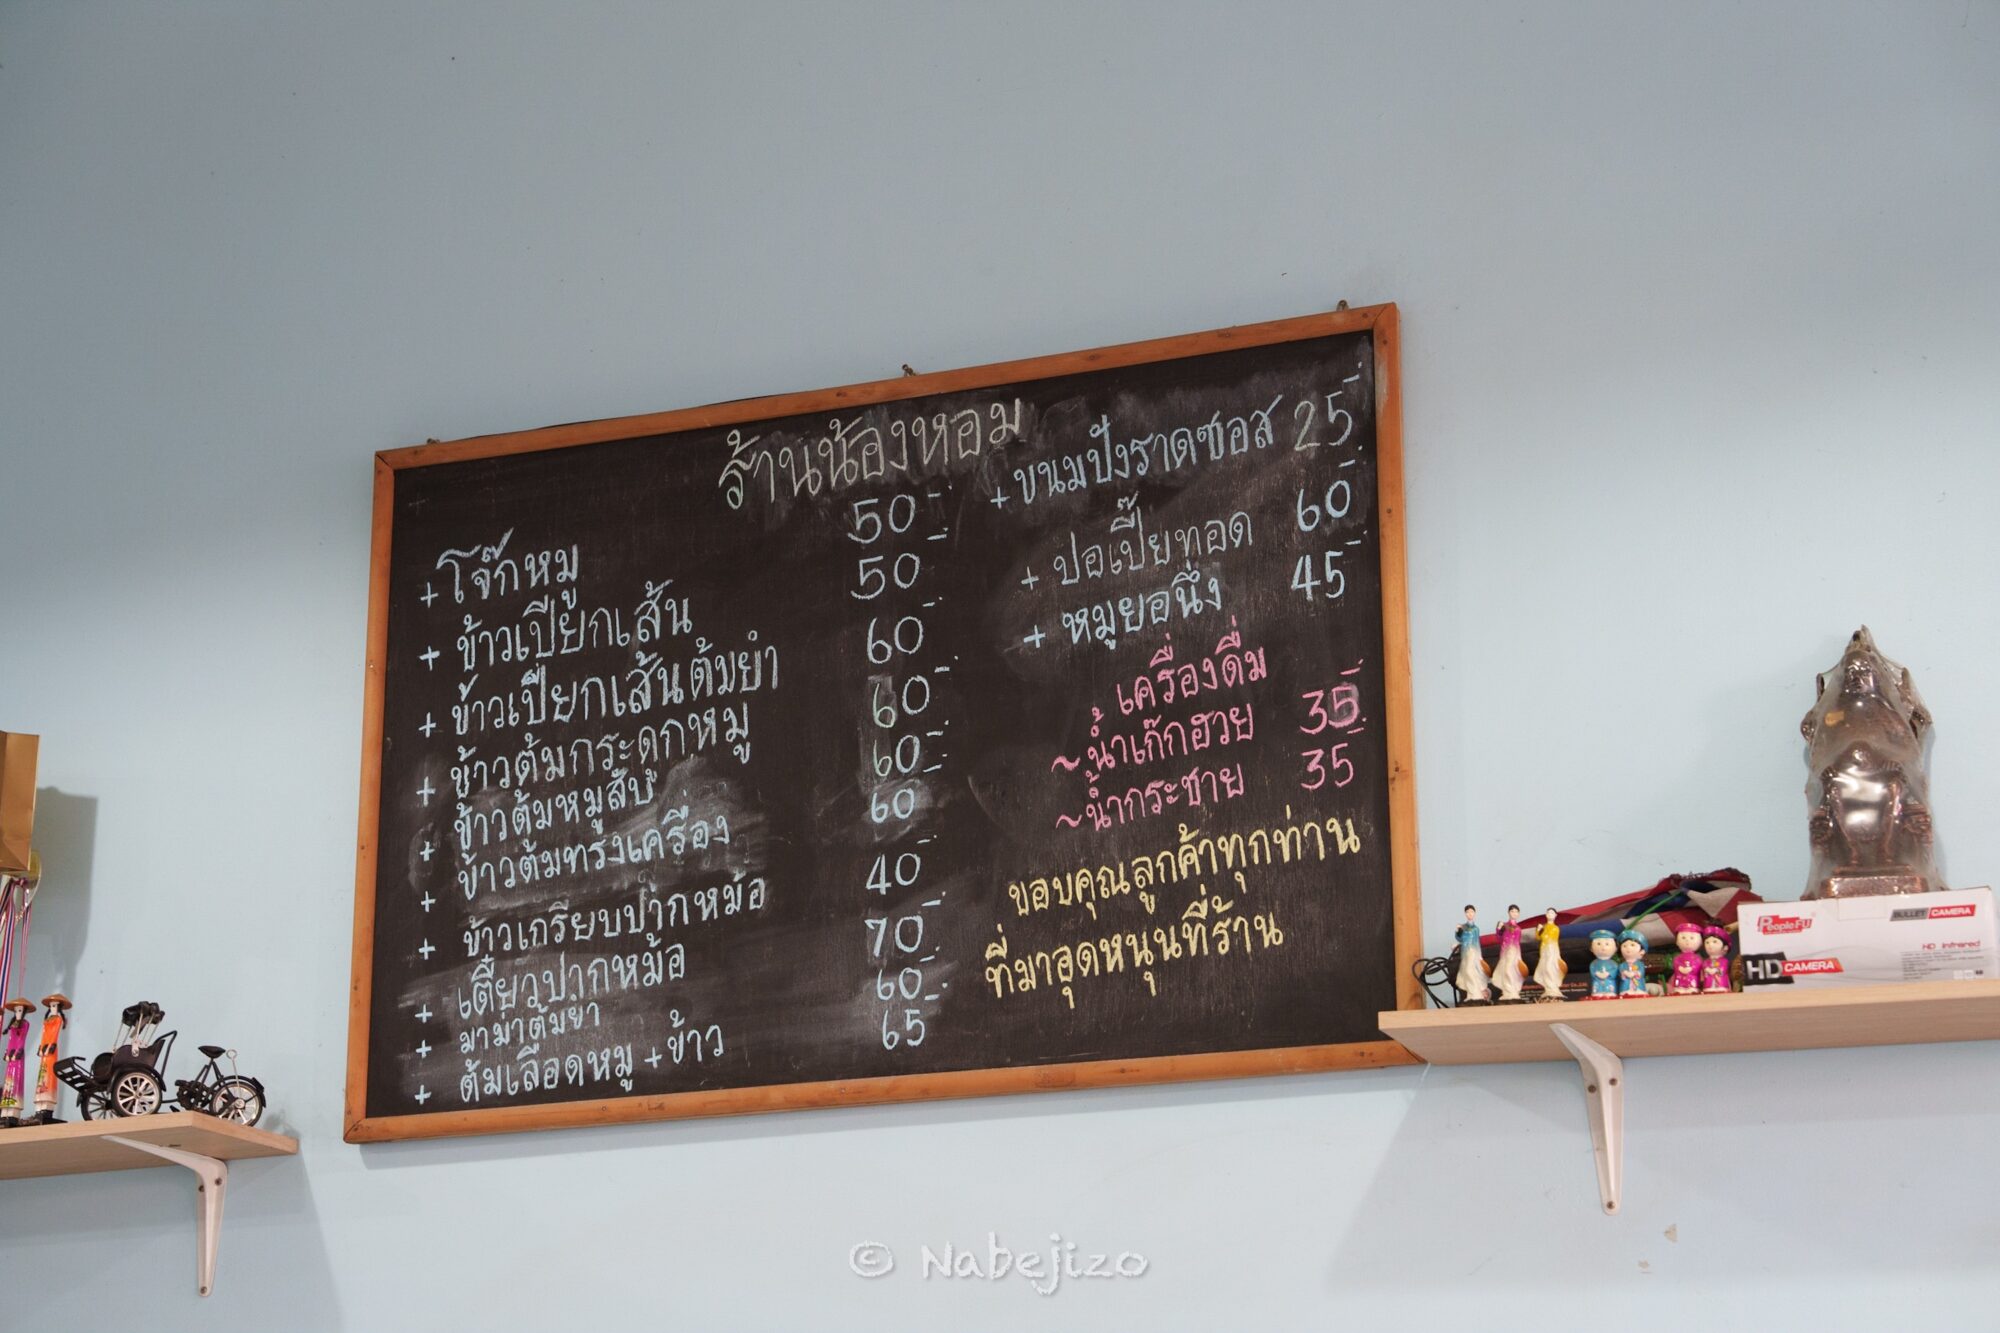 ร้านน้องหอม
+ โจ๊กหมู 50.-
+ ข้าวเปียกเส้น 50.-
+ ข้าวเปียกเส้นต้มยำ 60.-
+ ข้าวต้มกระดูกหมู 60.-
+ ข้าวต้มหมูสับ 60.-
+ ข้าวต้มทรงเครื่อง 60.-
+ ข้าวเกรียบปากหม้อ 40.-
+ เตี๋ยวปากหม้อ 70.-
+ มาม่าต้มยำ 60.-
+ ต้มเลือดหมู + ข้าว 65
+ ขนมปังราดซอส 25.-
+ ปอเปี๊ยทอด 60.-
+ หมูยอนึ่ง 45.-
เครื่องดื่ม
~ น้ำเก๊กฮวย 35.-
~ น้ำกระชาย 35.-
ขอบคุณลูกค้าทุกท่าน
ที่มาอุดหนุนที่ร้าน
PeopleFU
BULLET CAMERA
HD Infrared
HD CAMERA
© Nabejizo